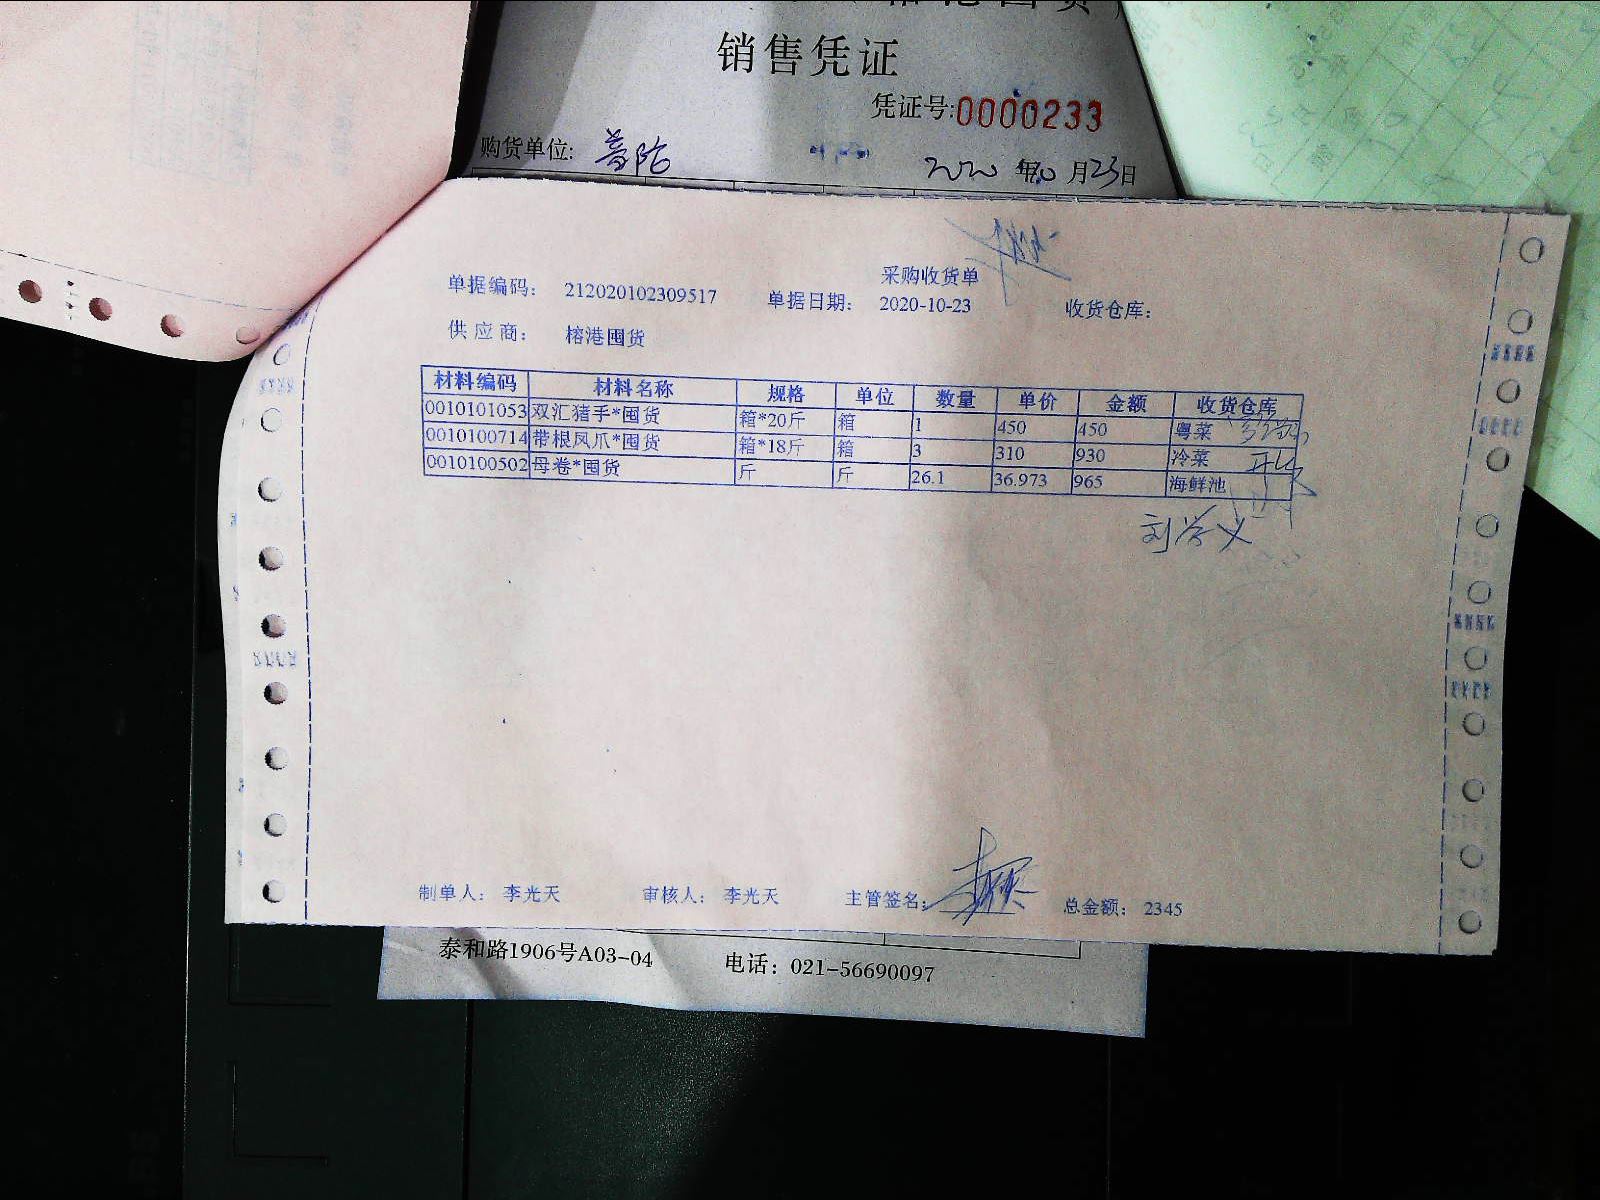 销售凭证
凭证号:0000233
购货单位: 普陀 2020年10月23日
采购收货单
单据编码: 212020102309517 单据日期: 2020-10-23 收货仓库:
供应商: 榕港囤货
材料编码 材料名称 规格 单位 数量 单价 金额 收货仓库
0010101053 双汇猪手*囤货 箱*20斤 箱 1 450 450 粤菜
0010100714 带根凤爪*囤货 箱*18斤 箱 3 310 930 冷菜
0010100502 母卷*囤货 斤 斤 26.1 36.973 965 海鲜池
刘学义
制单人: 李光天 审核人: 李光天 主管签名: 总金额: 2345
泰和路1906号A03-04 电话: 021-56690097